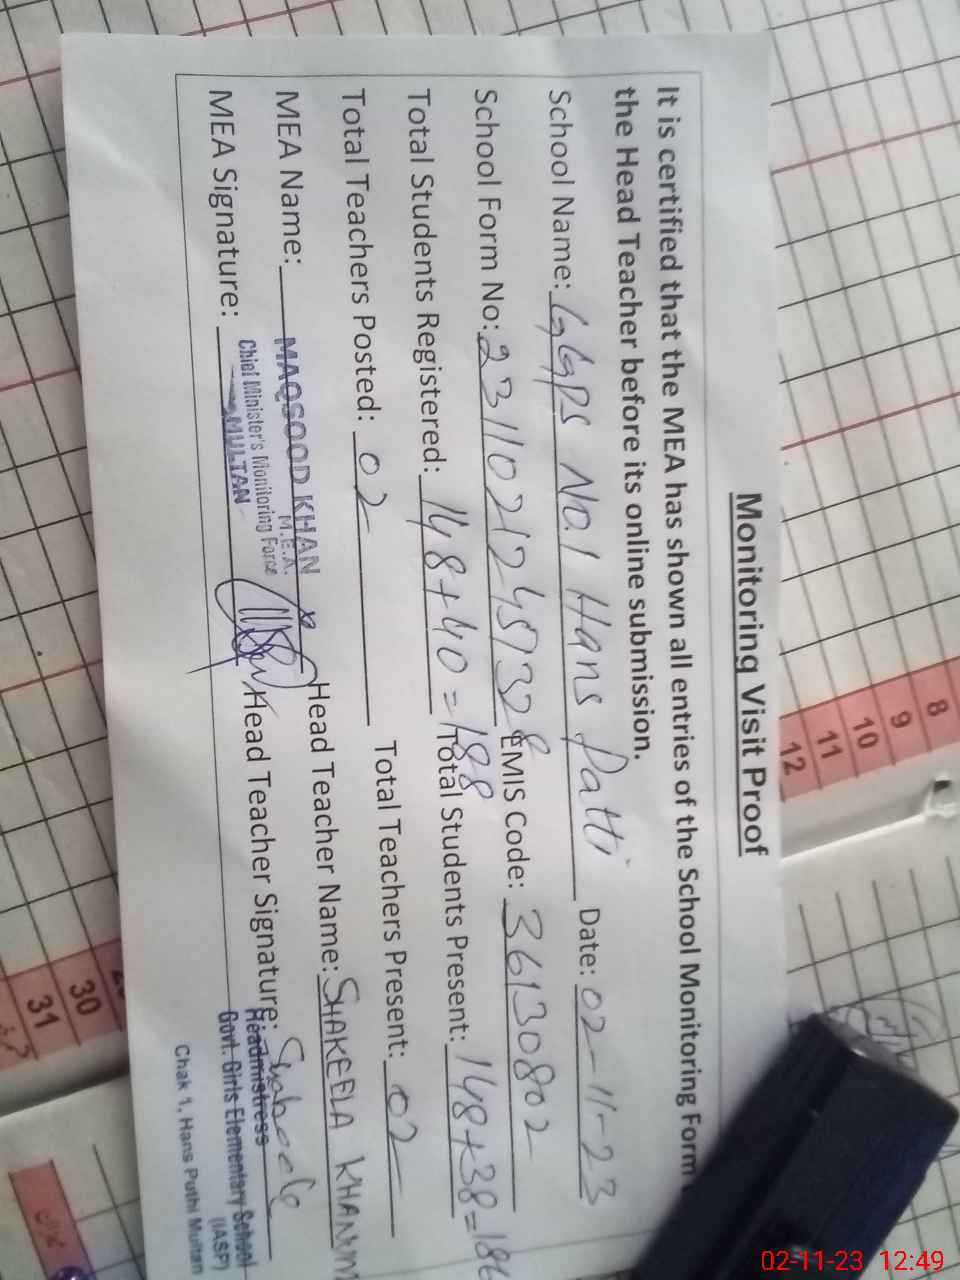 Monitoring Visit Proof
It is certified that the MEA has shown all entries of the School Monitoring Form
the Head Teacher before its online submission.
School Name: GGPS No.1 Hans Patti Date: 02-11-23
School Form No: EMIS Code: 36130802
Total Students Registered: 148+40=188 Total Students Present: 148+38=186
Total Teachers Posted: 02 Total Teachers Present: 02
MEA Name: MAQSOOD KHAN Head Teacher Name: SHAKEELA KHANAM
M.E.A.
MEA Signature: Head Teacher Signature:
Chief Minister's Monitoring Force
MULTAN
Headmistress
Govt. Girls Elementary School
(IASP)
Chak 1, Hans Puthi Multan
8
9
10
11
12
30
31
02-11-23 12:49